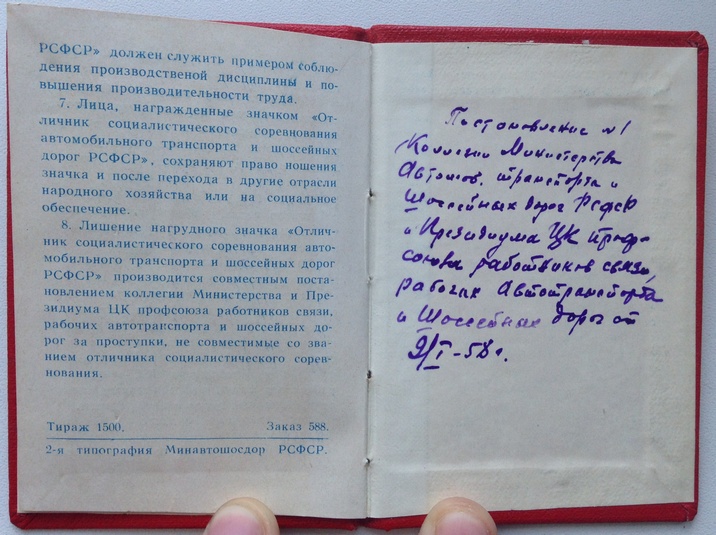 РСФСР» должен служить примером соблю-
дения производственой дисциплины и по-
вышения производительности труда.
7. Лица, награжденные значком «От-
личник социалистического соревнования
автомобильного транспорта и шоссейных
дорог РСФСР», сохраняют право ношения
значка и после перехода в другие отрасли
народного хозяйства или на социальное
обеспечение.
8. Лишение нагрудного значка «Отлич-
ник социалистического соревнования авто-
мобильного транспорта и шоссейных дорог
РСФСР» производится совместным поста-
новлением коллегии Министерства и Пре-
зидиума ЦК профсоюза работников связи,
рабочих автотранспорта и шоссейных до-
рог за проступки, не совместимые со зва-
нием отличника социалистического сорев-
нования.
Тираж 1500. Заказ 588.
2-я типография Минавтошосдор РСФСР.
Постановление №1
Коллегии Министерства
Автомоб. транспорта и
Шоссейных дорог РСФСР
и Президиума ЦК Проф-
союза работников связи,
рабочих Автотранспорта
и Шоссейных дорог от
9/I-58 г.